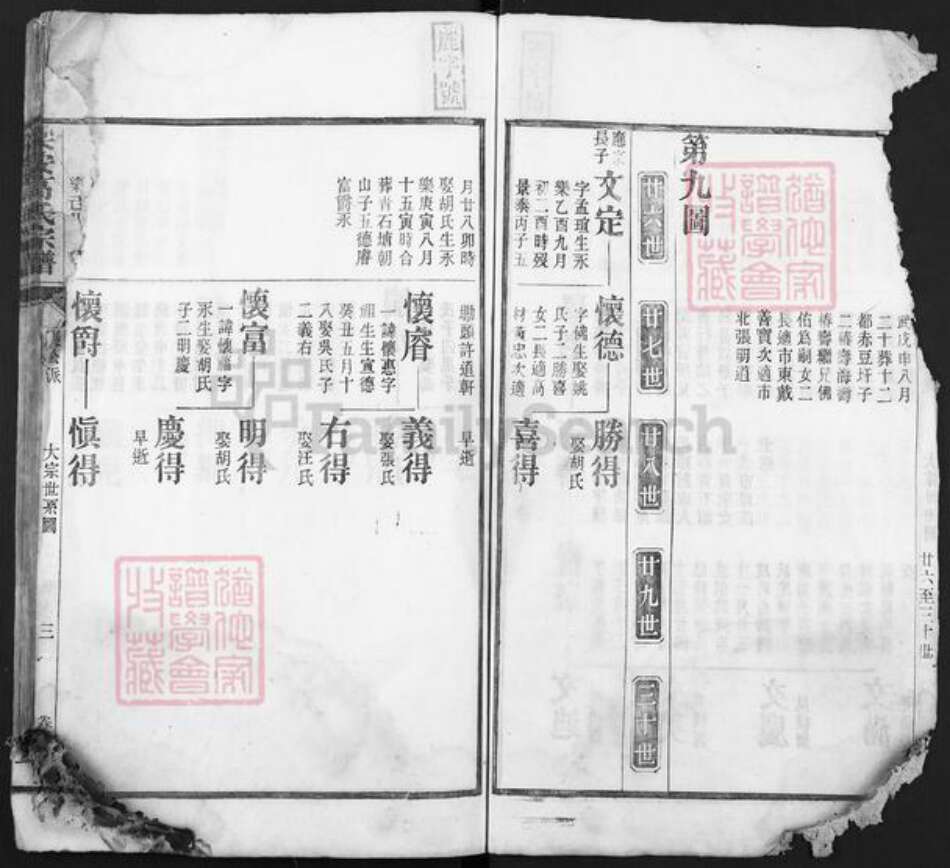 武戊申八月
三十葬十二
都赤豆圩子
二椿壽海壽
椿壽繼兄佛
佑爲嗣女二
長適市東戴
善寳次適市
北張明道
第九圖
廿六世
廿七世
廿八世
廿九世
三十世
長子
文定
字孟瑄生永
樂乙酉九月
初二酉時殁
景泰丙子五
月廿八卯時
娶胡氏生永
樂庚寅八月
十五寅時合
葬青石埔朝
山子五德睿
富爵永
懷德
字佛生娶姚
氏子二勝喜
女二長適高
忠次適
許道軒
勝得
娶胡氏
喜得
早逝
懷睿
一諱懷惠字
細生生宣德
癸丑五月十
八娶吳氏子
二義右
義得
娶張氏
右得
娶汪氏
懷富
一諱懷 字
永生娶胡氏
子二明慶
明得
娶胡氏
慶得
早逝
懷爵
愼得
氏宗譜
派
大宗世系圖
三
卷
廿六至三十世
麗字號
猶他家譜學會收藏
猶他家譜學會收藏
FamilySearch